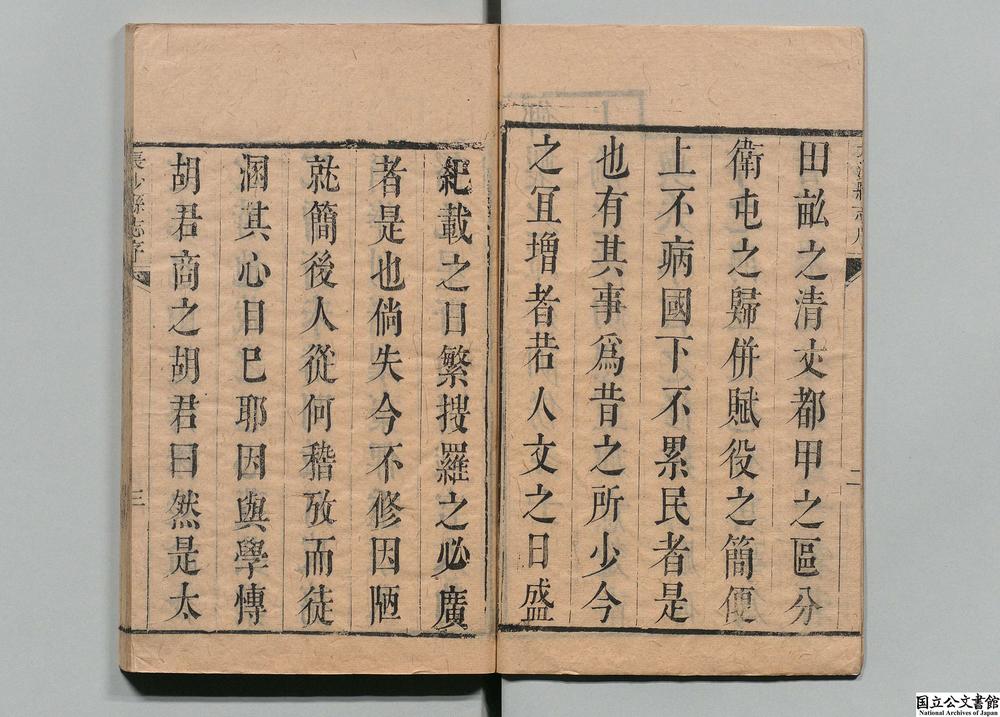 田畆之清丈都甲之區分
衛屯之歸併賦役之簡便
上不病國下不累民者是
也有其事爲昔之所少今
之宜増者若人文之日盛
二
紀載之日繁搜羅之必廣
者是也倘失今不修因陋
就簡後人從何稽攷而徒
溷其心目已耶因與學博
胡君商之胡君曰然是太
長沙縣志序
三
国立公文書館
National Archives of Japan